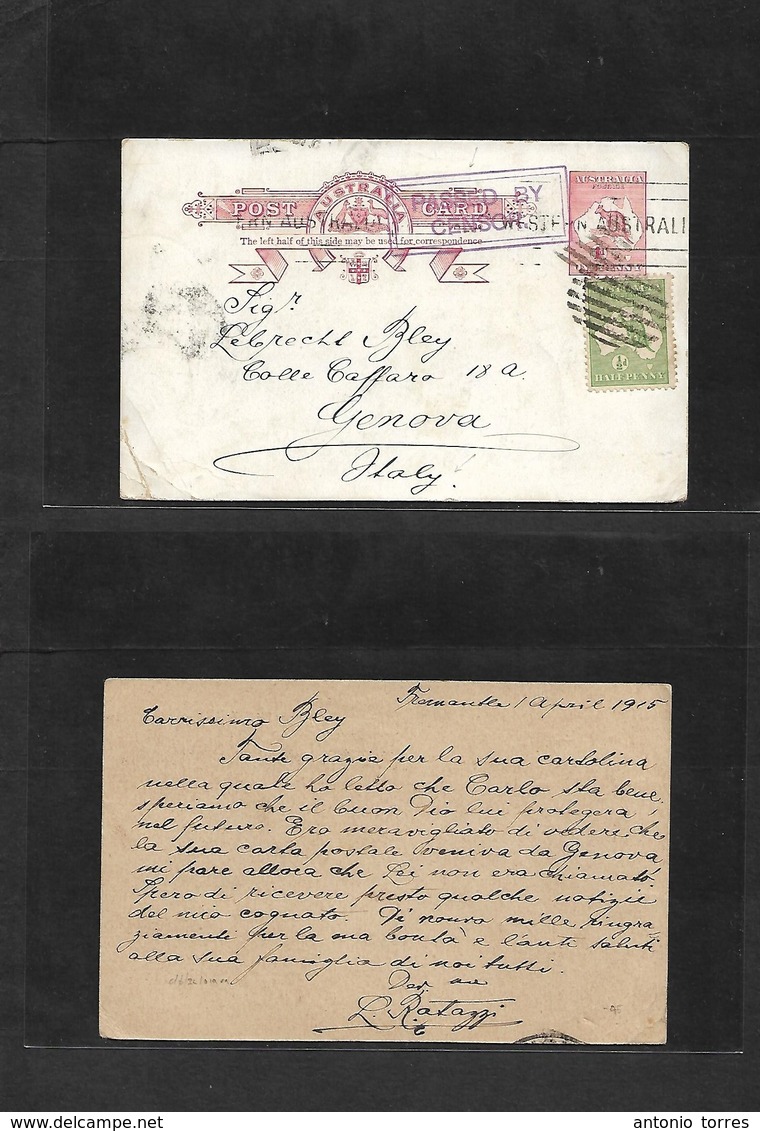 AUSTRALIA
POST CARD
PASSED BY
CENSOR
AUSTRALIA
POSTAGE
WESTERN AUSTRALI
The left half of this side may be used for correspondence
PENNY
½d
HALFPENNY
Sigr.
Lebrecht Bley
Colle Caffaro 18 a.
Genova
Italy.
Fremantle 1 April 1915
Carrissimo Bley
Tante grazie per la sua cartolina
nella quale ho letto che Carlo sta bene,
speriamo che il buon Dio lui protegera
nel futuro. Ero meravigliato di vedere che
la sua carta postale veniva da Genova
mi pare allora che Lei non era chiamato.
Spero di ricevere presto qualche notizie
del mio cognato. Di nouvo mille ringra
ziamenti per la sua bontà e tante saluti
alla sua famiglia di noi tutti.
L. Ratazzi
antonio torres